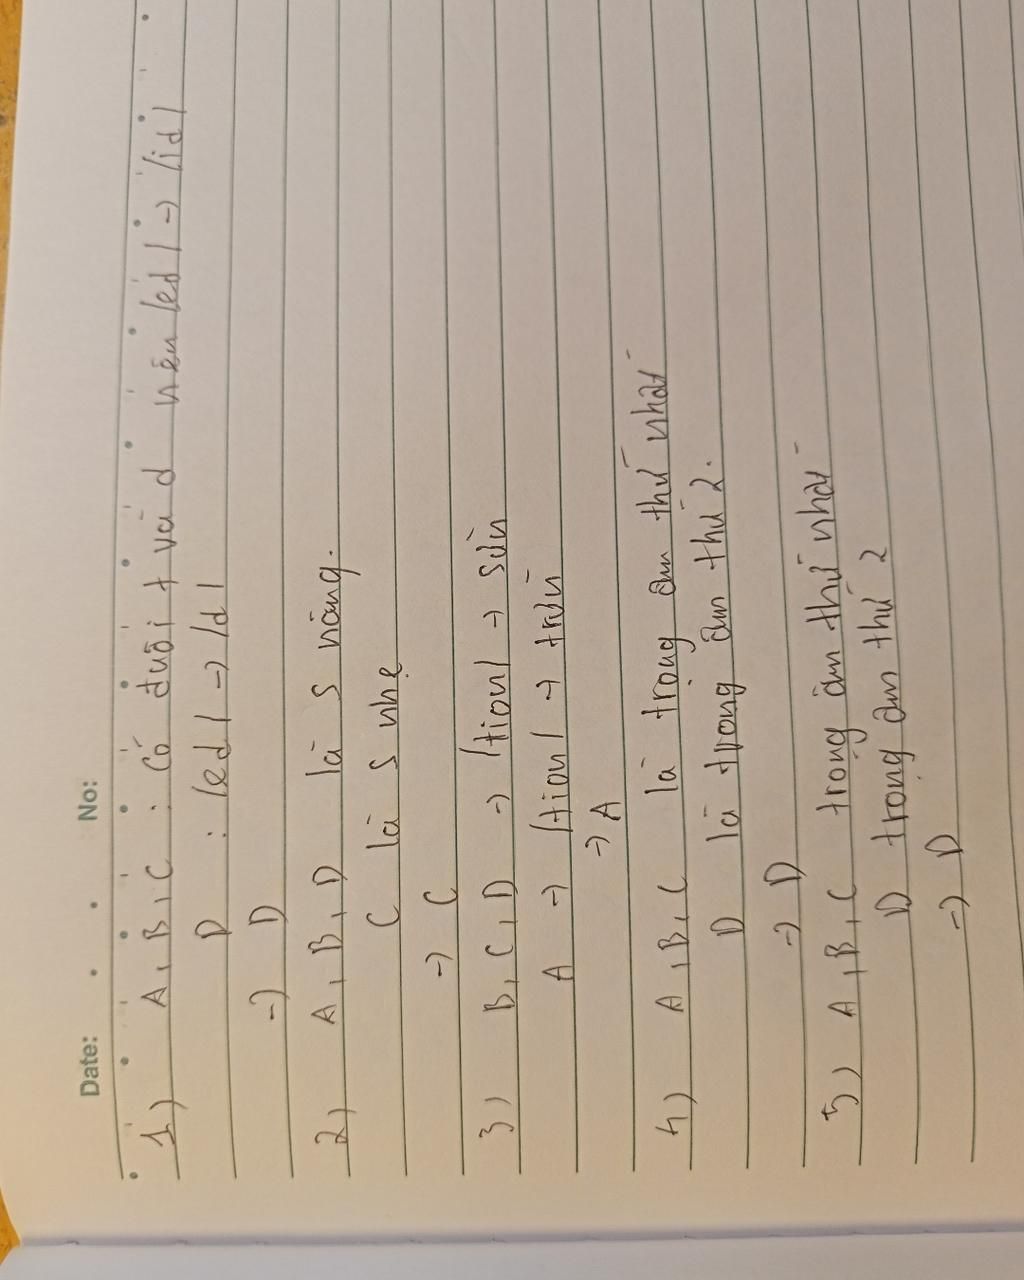 Date: No:
1) A, B, C : Có đuôi t và d nên /ed/ -> /id/
D : /ed/ -> /d/
-> D
2) A, B, D là S nặng.
C là S nhẹ
-> C
3) B, C, D -> /tion/ -> sừn
A -> /tion/ -> trừn
-> A
4) A, B, C là trọng âm thứ nhất
D là trọng âm thứ 2.
-> D
5) A, B, C trọng âm thứ nhất
D trọng âm thứ 2
-> D